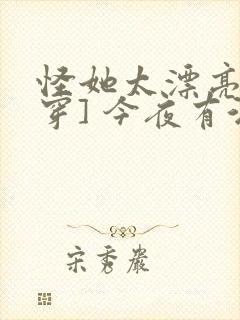 怪她太漂亮
穿] 今夜有
宋秀嚴